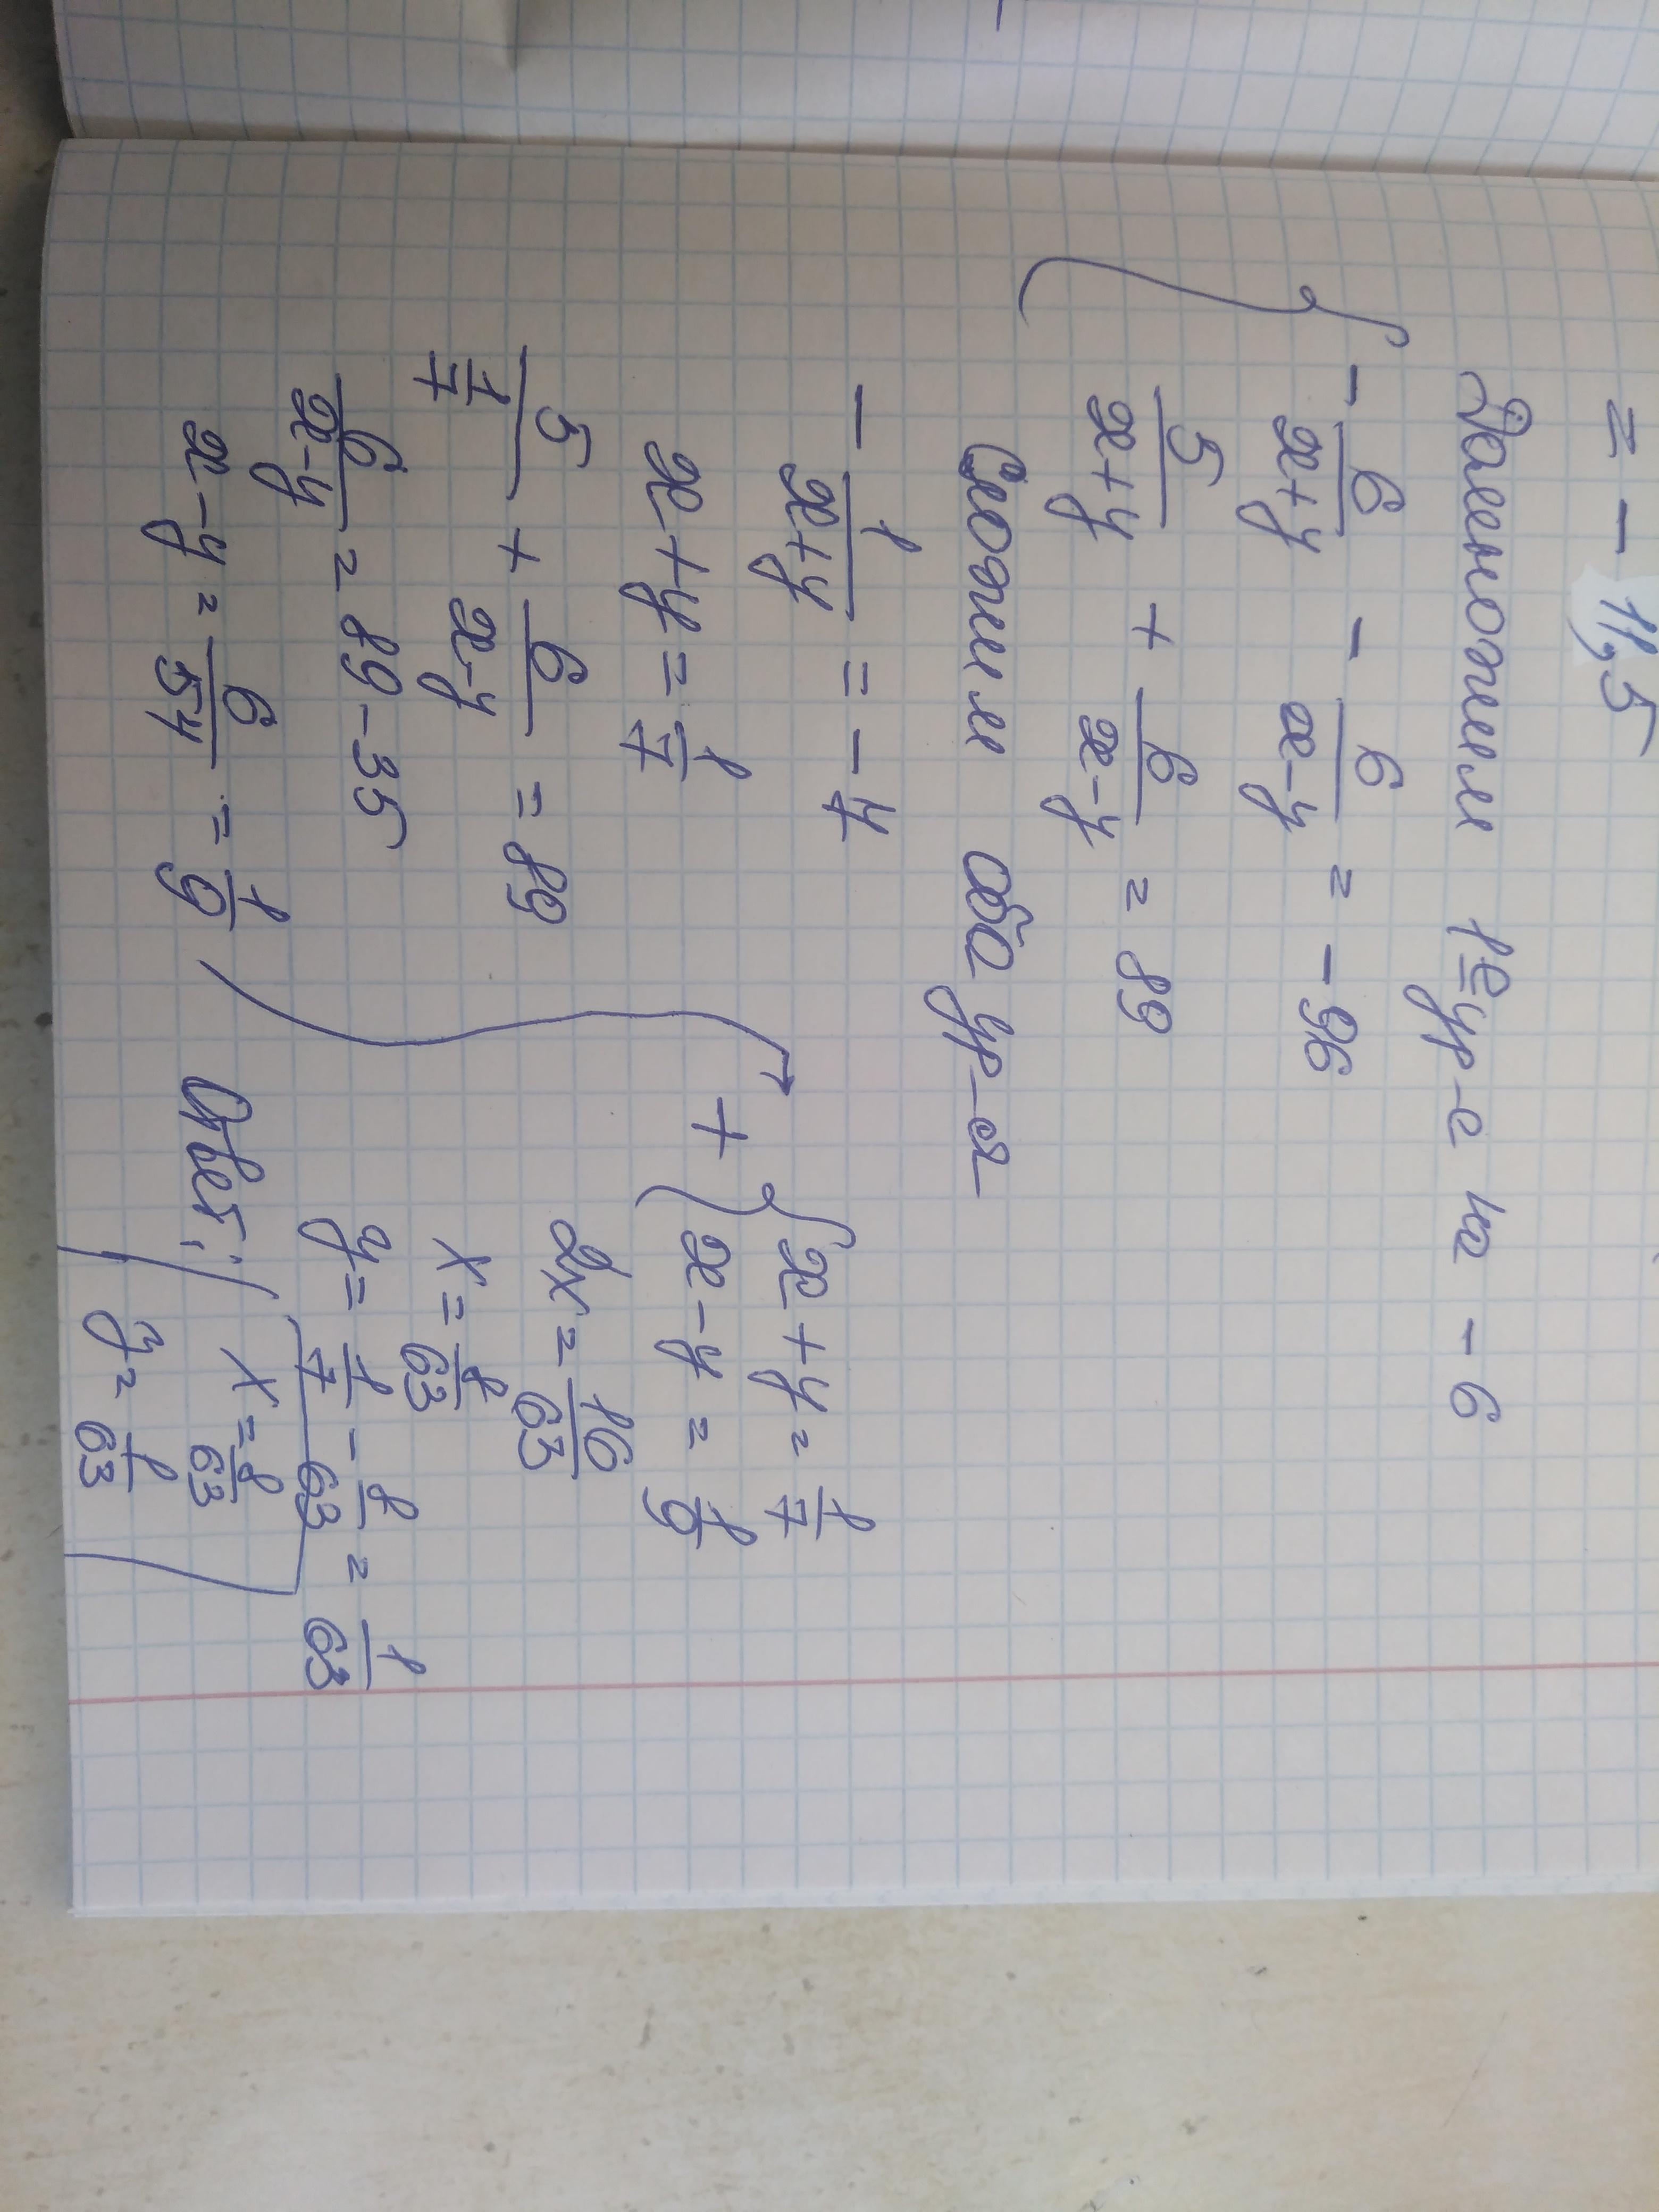 = - 11,5
Домножим 1е ур-е на - 6
{ - 6/(x+y) - 6/(x-y) = - 96
5/(x+y) + 6/(x-y) = 89
Сложим оба ур-я
- 1/(x+y) = - 7
x+y = 1/7
5/(1/7) + 6/(x-y) = 89
6/(x-y) = 89 - 35
x-y = 6/54 = 1/9
+ { x+y = 1/7
x-y = 1/9
2x = 16/63
x = 8/63
y = 1/7 - 8/63 = 1/63
Ответ: x = 8/63
y = 1/63